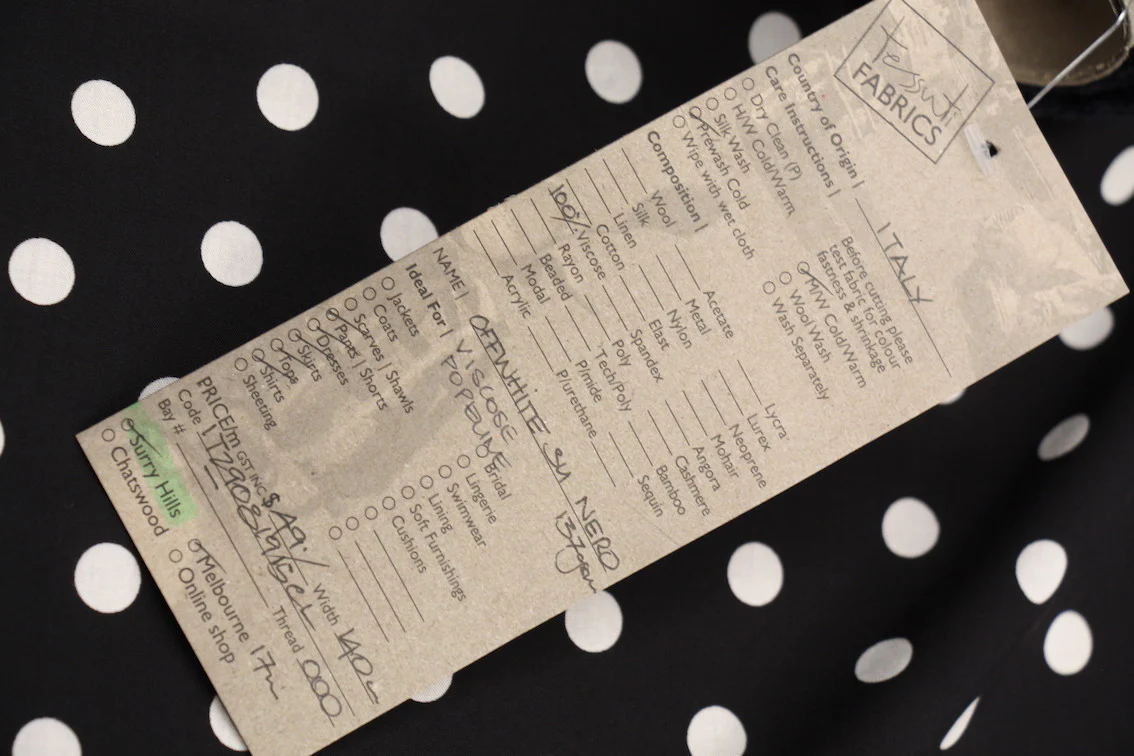 Tessuti
FABRICS
Country of Origin | ITALY
Care Instructions |
Before cutting please
test fabric for colour
fastness & shrinkage
Dry Clean (P)
H/W Cold/Warm
Silk Wash
Prewash Cold
Wipe with wet cloth
M/W Cold/Warm
Wool Wash
Wash Separately
Composition |
Wool
Silk
Linen
Cotton
100% Viscose
Rayon
Beaded
Modal
Acrylic
Acetate
Metal
Nylon
Elast
Spandex
Poly
Tech/Poly
P/mide
P/urethane
Lycra
Lurex
Neoprene
Mohair
Angora
Cashmere
Bamboo
Sequin
NAME | OFFWHITE SU NERO
VISCOSE 137gsm
POPELINE
Ideal For |
Jackets
Coats
Scarves | Shawls
Pants | Shorts
Dresses
Skirts
Tops
Shirts
Sheeting
Bridal
Lingerie
Swimwear
Lining
Soft Furnishings
Cushions
PRICE/m GST INC $49./ Width 140
Code Thread 000
Bay #
Surry Hills
Chatswood
Melbourne 17m
Online shop